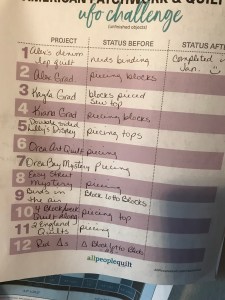 AMERICAN PATCHWORK & QUILT
ufo challenge
(unfinished objects)
PROJECT STATUS BEFORE STATUS AFT
1 Alex's denim lap quilt needs binding Completed Jan.
2 Alex Grad piecing blocks
3 Kayla Grad blocks pieced sew top
4 Kiana Grad piecing blocks
5 Double sided Disney piecing tops
6 Orca Art Quilt piecing
7 Orca Bay Mystery Piecing
8 Easy Street Mystery piecing
9 Birds in the air Block to Blocks
10 4 Block piecing top
11 2 England Quilts piecing
12 Rue Δs Δ Block
allpeoplequilt